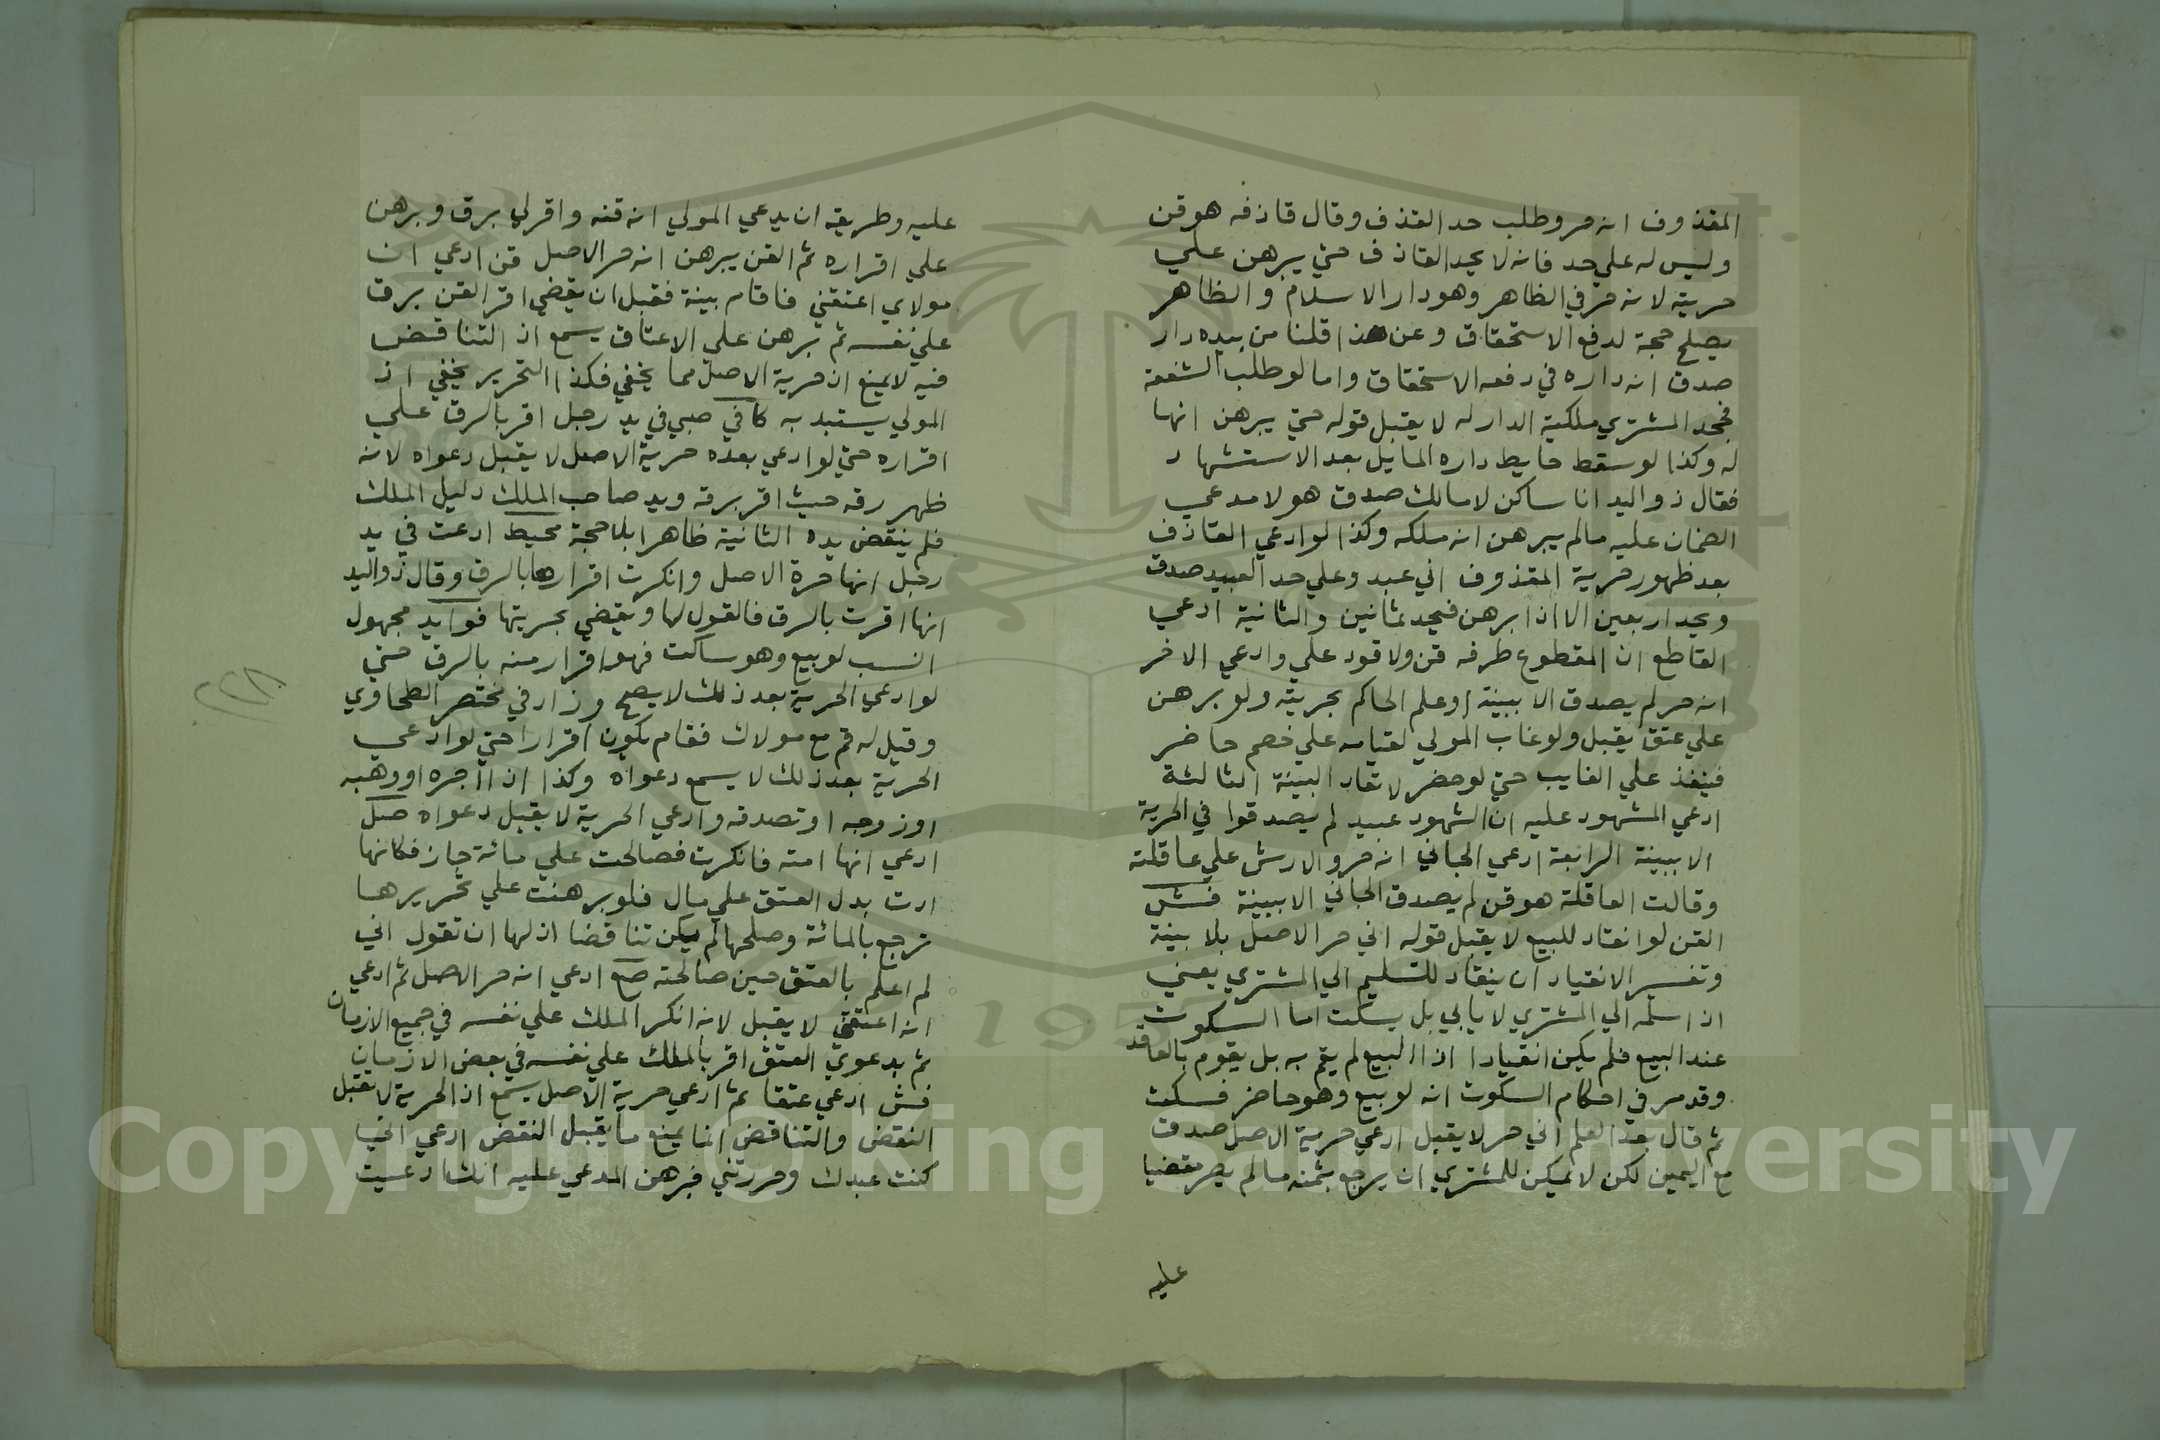 المقذوف انه حر وطلب حد القذف وقال قاذفه هو قن
وليس له علي حد فانه لا يحد القاذف حتي يبرهن علي
حريته لانه حر في الظاهر وهو دار الاسلام والظاهر
يصلح حجة لدفع الاستحقاق وعن هذا قلنا من بيده دار
صدق انه داره في دفعه الاستحقاق واما لو طلب الشفعة
فجحد المشتري ملكية الدار له لا يقبل قوله حتي يبرهن انها
له وكذا لو سقط حايط داره المايل بعد الاستشهاد
فقال ذو اليد انا ساكن لا مالك صدق هو لا مدعي
الضمان عليه مالم يبرهن انه ملكه وكذا لو ادعي القاذف
بعد ظهور حرية المقذوف اني عبد وعلي حد العبيد صدق
ويحد اربعين الا اذا برهن فيحد ثمانين والثانية ادعي
القاطع ان المقطوع طرفه قن ولا قود علي وادعي الاخر
انه حر لم يصدق الا ببينة او علم الحاكم بحريته ولو برهن
علي عتق يقبل ولو غاب المولي لقيامه علي خصم حاضر
فينفذ علي الغايب حتي لو حضر لا تعاد البينة الثالثة
ادعي المشهود عليه ان الشهود عبيد لم يصدقوا في الحرية
الا ببينة الرابعة ادعي الجاني انه حر والارش علي عاقلته
وقالت العاقلة هو قن لم يصدق الجاني الا ببينة فش
القن لو انقاد للبيع لا يقبل قوله اني حر الاصل بلا بينة
وتفسير الانقياد ان ينقاد للتسليم الي المشتري يعني
اذا سلمه الي المشتري لا يابي بل يسكت اما السكوت
عند البيع فلم يكن انقيادا اذ البيع لم يقم به بل يقوم بالعاقد
وقد مر في احكام السكوت انه لو بيع وهو حاضر فسكت
ثم قال بعد العلم اني حر لا يقبل ادعي حرية الاصل صدق
مع اليمين لكن لا يمكن للمشتري ان يرجع بثمنه مالم يصر مقضيا
عليه
عليه وطريقه ان يدعي المولي انه قنه واقر لي برق وبرهن
علي اقراره ثم القن يبرهن انه حر الاصل قن ادعي ان
مولاي اعتقني فاقام بينة فقبل ان يقضي اقر القن برق
علي نفسه ثم برهن علي الاعتاق يسمع اذ التناقض
فيه لا يمنع اذ حرية الاصل مما يخفي فكذا التحرير يخفي اذ
المولي يستبد به كافي صبي في يد رجل اقر بالرق علي
اقراره حتي لو ادعي بعده حرية الاصل لا يقبل دعواه لانه
ظهر رقه حيث اقر برقه ويد صاحب الملك دليل الملك
فلم ينقض يده الثانية ظاهرا بلا حجة محيط ادعت في يد
رجل انها حرة الاصل وانكرت اقرارها بالرق وقال ذو اليد
انها اقرت بالرق فالقول لها ويقضي بحريتها فوايد مجهول
النسب لو بيع وهو ساكت فهو اقرار منه بالرق حتي
لو ادعي الحرية بعد ذلك لا يصح وزاد في مختصر الطحاوي
وقيل له قم مع مولاك فقام يكون اقرارا حتي لو ادعي
الحرية بعد ذلك لا يسمع دعواه وكذا اذا اجره او وهبه
او زوجه او تصدقه وادعي الحرية لا يقبل دعواه صل
ادعي انها امته فانكرت فصالحت علي مائة جاز فكانها
ادت بدل العتق علي مال فلو برهنت علي تحريرها
ترجع بالمائة وصلحها لم يكن تناقضا اذ لها ان تقول اني
لم اعلم بالعتق حين صالحته صع ادعي انه حر الاصل ثم ادعي
انه اعتقني لا يقبل لانه انكر الملك علي نفسه في جميع الازمان
ثم بدعوي العتق اقر بالملك علي نفسه في بعض الازمان
فش ادعي عتقا ثم ادعي حرية الاصل يسمع اذ الحرية لا تقبل
النقض والتناقض انما يمنع ما يقبل النقض ادعي اني
كنت عبدك وحررتني فبرهن المدعي عليه انك ادعيت
٢٢٨
1957
Copyright © King Saud University